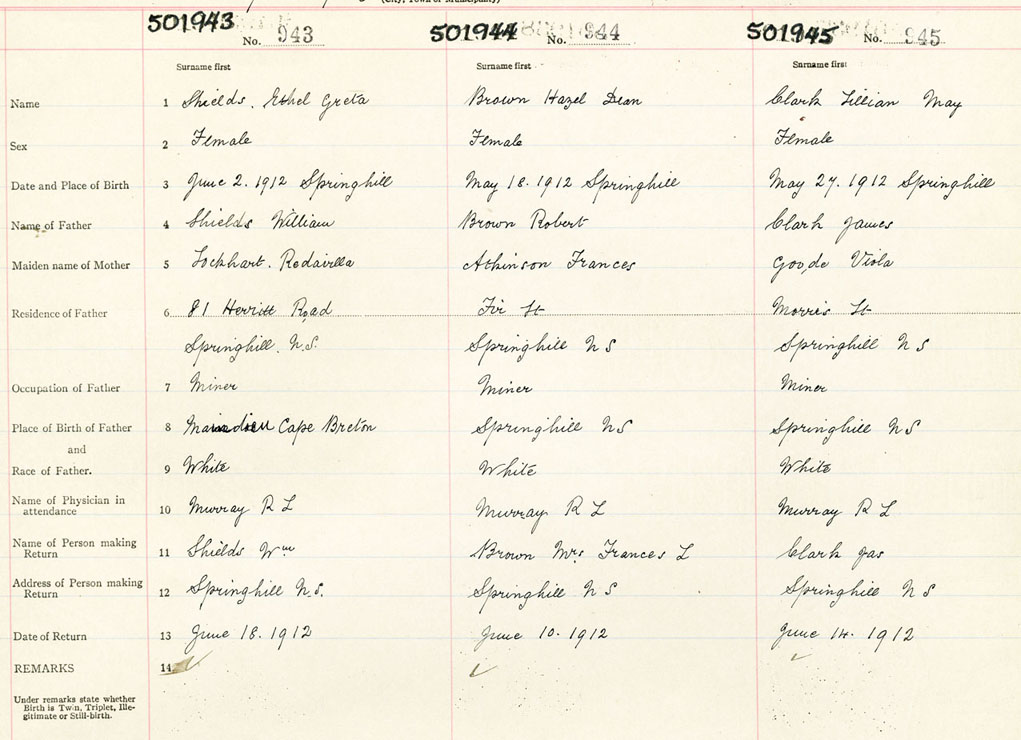 (City, Town or Municipality)
501943 No. 943 501944 No. 944 501945 No. 945
Surname first Surname first Surname first
Name 1 Shields. Ethel Greta Brown Hazel Dean Clark Lillian May
Sex 2 Female Female Female
Date and Place of Birth 3 June 2. 1912 Springhill May 18. 1912 Springhill May 27. 1912 Springhill
Name of Father 4 Shields William Brown Robert Clark James
Maiden name of Mother 5 Lockhart. Atkinson Frances Goode Viola
Residence of Father 6 81 Herritt Road Fir St Morris St
Springhill. N.S. Springhill N S Springhill N S
Occupation of Father 7 Miner Miner Miner
Place of Birth of Father 8 Cape Breton Springhill NS Springhill NS
and
Race of Father. 9 White White White
Name of Physician in
attendance 10 Murray R L Murray R L Murray R L
Name of Person making
Return 11 Shields Wm Brown Mrs Frances L Clark Jas
Address of Person making
Return 12 Springhill N.S. Springhill N S Springhill N S
Date of Return 13 June 18. 1912 June 10. 1912 June 14. 1912
REMARKS 14
Under remarks state whether
Birth is Twin, Triplet, Ille-
gitimate or Still-birth.